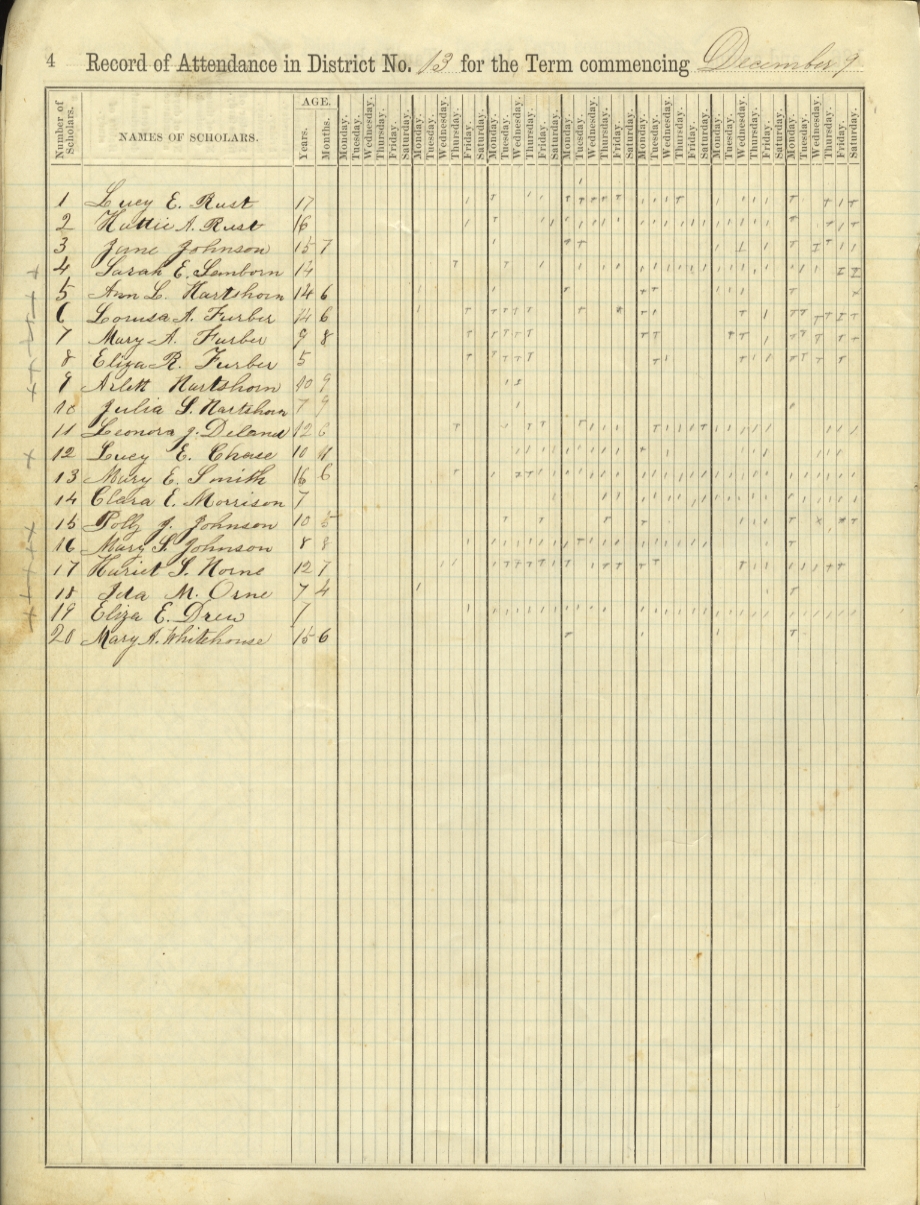 4 Record of Attendance in District No. 13 for the Term commencing December 9
Number of Scholars. NAMES OF SCHOLARS. AGE. Years. Months. Monday. Tuesday. Wednesday. Thursday. Friday. Saturday. Monday. Tuesday. Wednesday. Thursday. Friday. Saturday. Monday. Tuesday. Wednesday. Thursday. Friday. Saturday. Monday. Tuesday. Wednesday. Thursday. Friday. Saturday. Monday. Tuesday. Wednesday. Thursday. Friday. Saturday. Monday. Tuesday. Wednesday. Thursday. Friday. Saturday. Monday. Tuesday. Wednesday. Thursday. Friday. Saturday.
1 Lucy E. Rust 17
2 Hattie A. Rust 16
3 Jane Johnson 15 7
4 Sarah E. Sanborn 14
5 Ann L. Hartshorn 14 6
6 Lovisa A. Furber 14 6
7 Mary A. Furber 9 8
8 Eliza R. Furber 5
9 Arlett Hartshorn 10 9
10 Julia S. Hartshorn 7 9
11 Leonora J. Deland 12 6
12 Lucy E. Chase 10 8
13 Mary E. Smith 16 6
14 Clara E. Morrison 7
15 Polly J. Johnson 10 5
16 Mary S. Johnson 8 8
17 Hariet S. Horne 12 7
18 Ida M. Orne 7 4
19 Eliza E. Drew 7
20 Mary A. Whitehouse 15 6